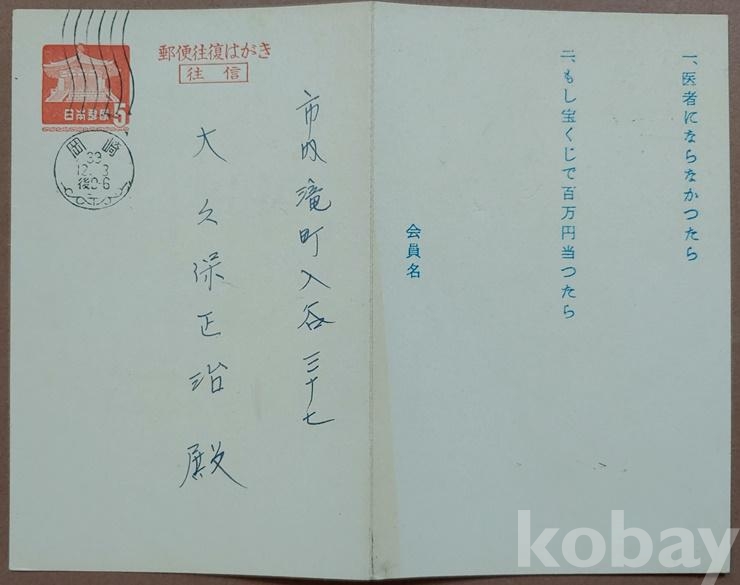 郵便往復はがき
往信
日本郵便
5
岡崎
33
12. 3
後0-6
市内滝町入谷三十七
大久保正治殿
一、医者にならなかつたら
二、もし宝くじで百万円当つたら
会員名
kobay